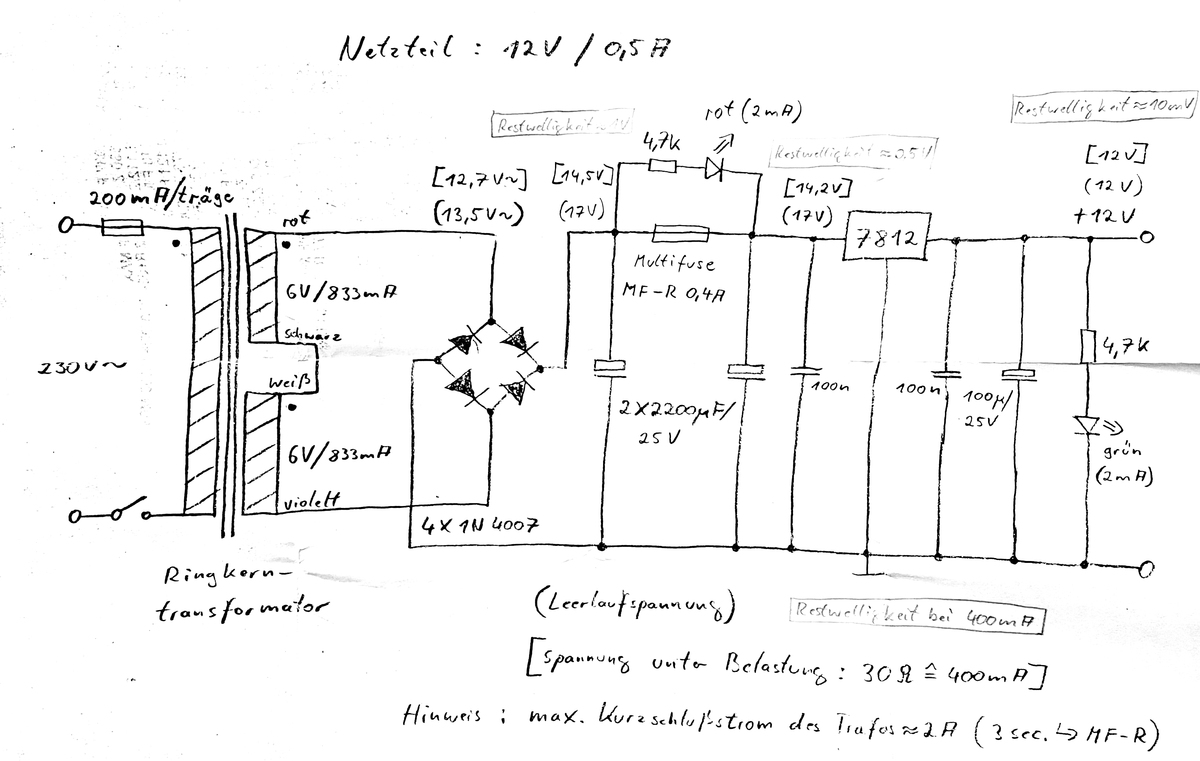 Netzteil : 12V / 0,5A
Restwelligkeit ≈ 1V
rot (2mA)
Restwelligkeit ≈ 10mV
4,7k
Restwelligkeit ≈ 0.5V
[12V]
(12V)
+12V
[12,7V~]
(13,5V~)
[14,5V]
(17V)
[14,2V]
(17V)
200mA/träge
rot
7812
Multifuse
MF-R 0,4A
6V/833mA
schwarz
230V~
weiß
4,7k
100n
100n
100µ/
25V
2X2200µF/
25V
6V/833mA
grün
(2mA)
violett
4X 1N 4007
Ringkern-
transformator
(Leerlaufspannung)
Restwelligkeit bei 400mA
[Spannung unter Belastung : 30Ω ≙ 400mA]
Hinweis : max. Kurzschlußstrom des Trafos ≈ 2A (3 sec. ↳ MF-R)